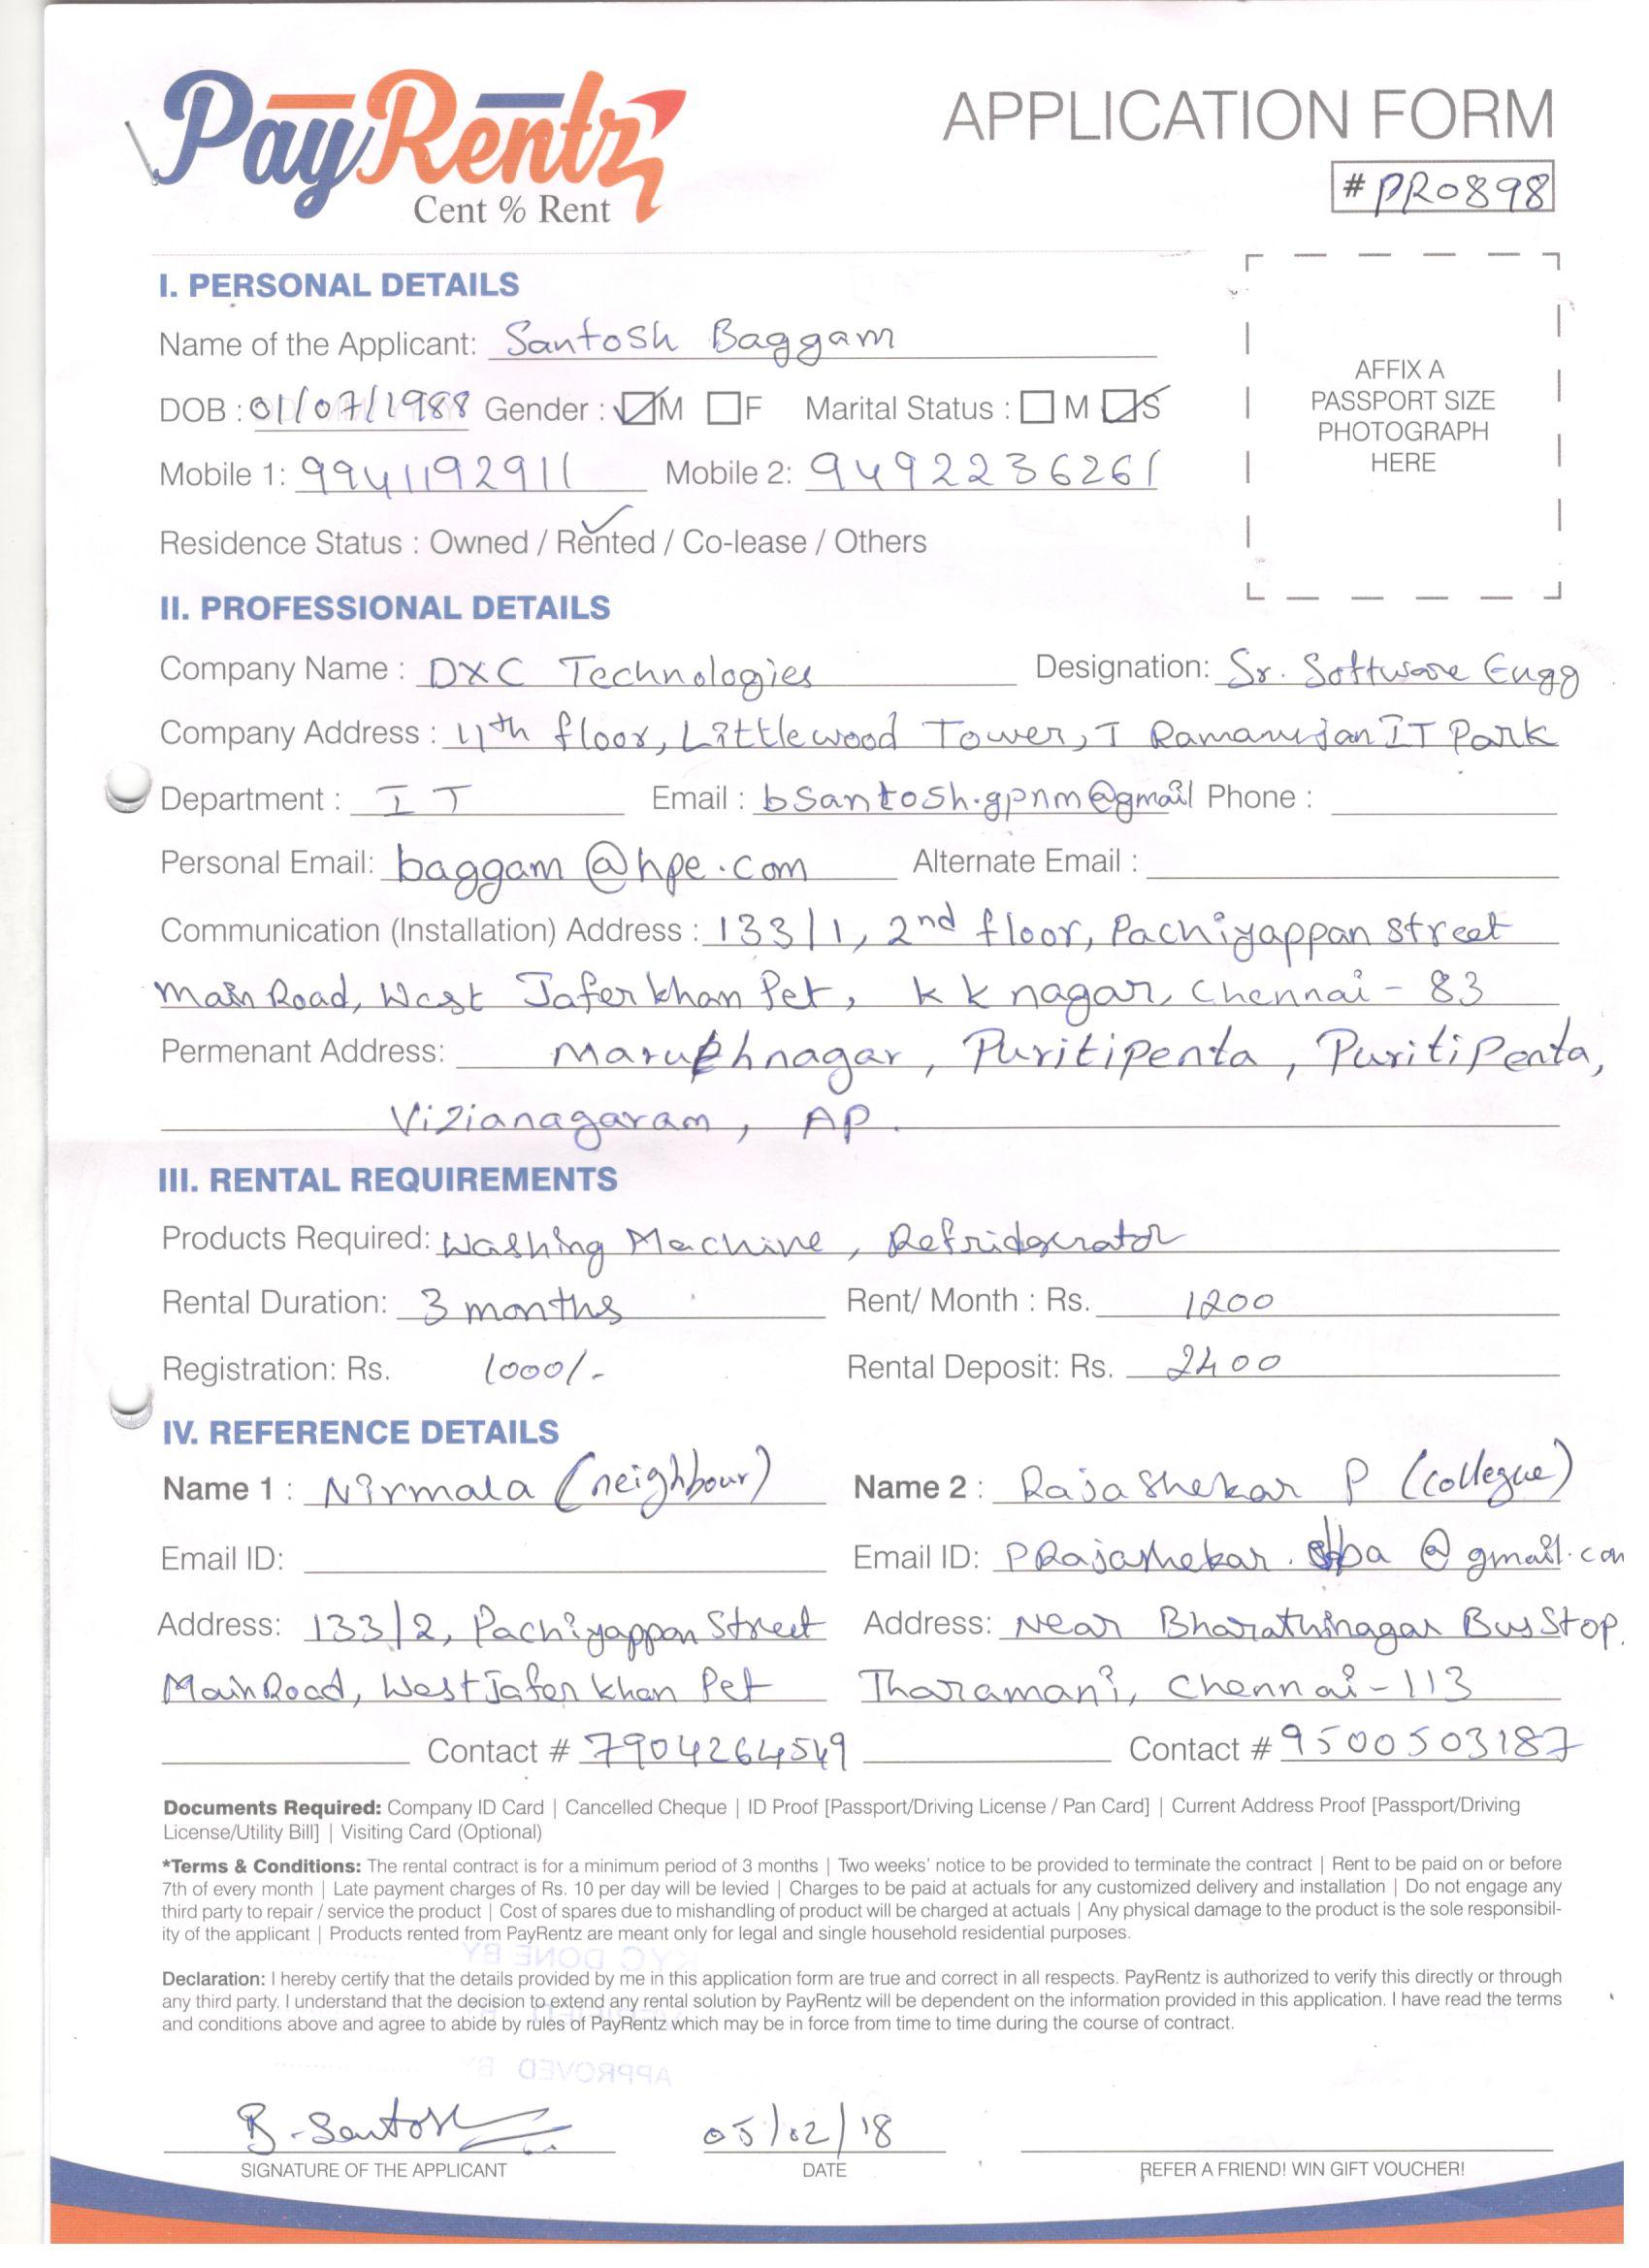 PayRentz
Cent % Rent
APPLICATION FORM
# PR0898
I. PERSONAL DETAILS
Name of the Applicant: Santosh Baggam
DOB : 01/07/1988 Gender : M F Marital Status : M S
Mobile 1: 9941192911 Mobile 2: 9492236261
Residence Status : Owned / Rented / Co-lease / Others
AFFIX A
PASSPORT SIZE
PHOTOGRAPH
HERE
II. PROFESSIONAL DETAILS
Company Name : DXC Technologies Designation: Sr. Software Engg
Company Address : 11th floor, Littlewood Tower, Ramanujan IT Park
Department : IT Email : bsantosh.gpnm@gmail Phone :
Personal Email: baggam@hpe.com Alternate Email :
Communication (Installation) Address : 133/1, 2nd floor, Pachiyappan street
Main Road, West Jaferkhan Pet, K K nagar, Chennai - 83
Permenant Address: Puritipenta, Puritipenta,
Vizianagaram, AP.
III. RENTAL REQUIREMENTS
Products Required: Washing Machine, Refridgerator
Rental Duration: 3 months Rent/ Month : Rs. 1200
Registration: Rs. 1000/- Rental Deposit: Rs. 2400
IV. REFERENCE DETAILS
Name 1 : Nirmala (neighbour) Name 2 : Rajashekar P (collegue)
Email ID: Email ID: @gmail.com
Address: 133/2, Pachiyappan Street Address: Near Bharathinagar Bus Stop,
Main Road, West Jafer khan Pet Tharamani, Chennai-113
Contact # 7904264549 Contact # 9500503187
Documents Required: Company ID Card | Cancelled Cheque | ID Proof [Passport/Driving License / Pan Card] | Current Address Proof [Passport/Driving
License/Utility Bill] | Visiting Card (Optional)
*Terms & Conditions: The rental contract is for a minimum period of 3 months | Two weeks' notice to be provided to terminate the contract | Rent to be paid on or before
7th of every month | Late payment charges of Rs. 10 per day will be levied | Charges to be paid at actuals for any customized delivery and installation | Do not engage any
third party to repair / service the product | Cost of spares due to mishandling of product will be charged at actuals | Any physical damage to the product is the sole responsibil-
ity of the applicant | Products rented from PayRentz are meant only for legal and single household residential purposes.
Declaration: I hereby certify that the details provided by me in this application form are true and correct in all respects. PayRentz is authorized to verify this directly or through
any third party. I understand that the decision to extend any rental solution by PayRentz will be dependent on the information provided in this application. I have read the terms
and conditions above and agree to abide by rules of PayRentz which may be in force from time to time during the course of contract.
B. Santosh 05/02/18
SIGNATURE OF THE APPLICANT DATE REFER A FRIEND! WIN GIFT VOUCHER!